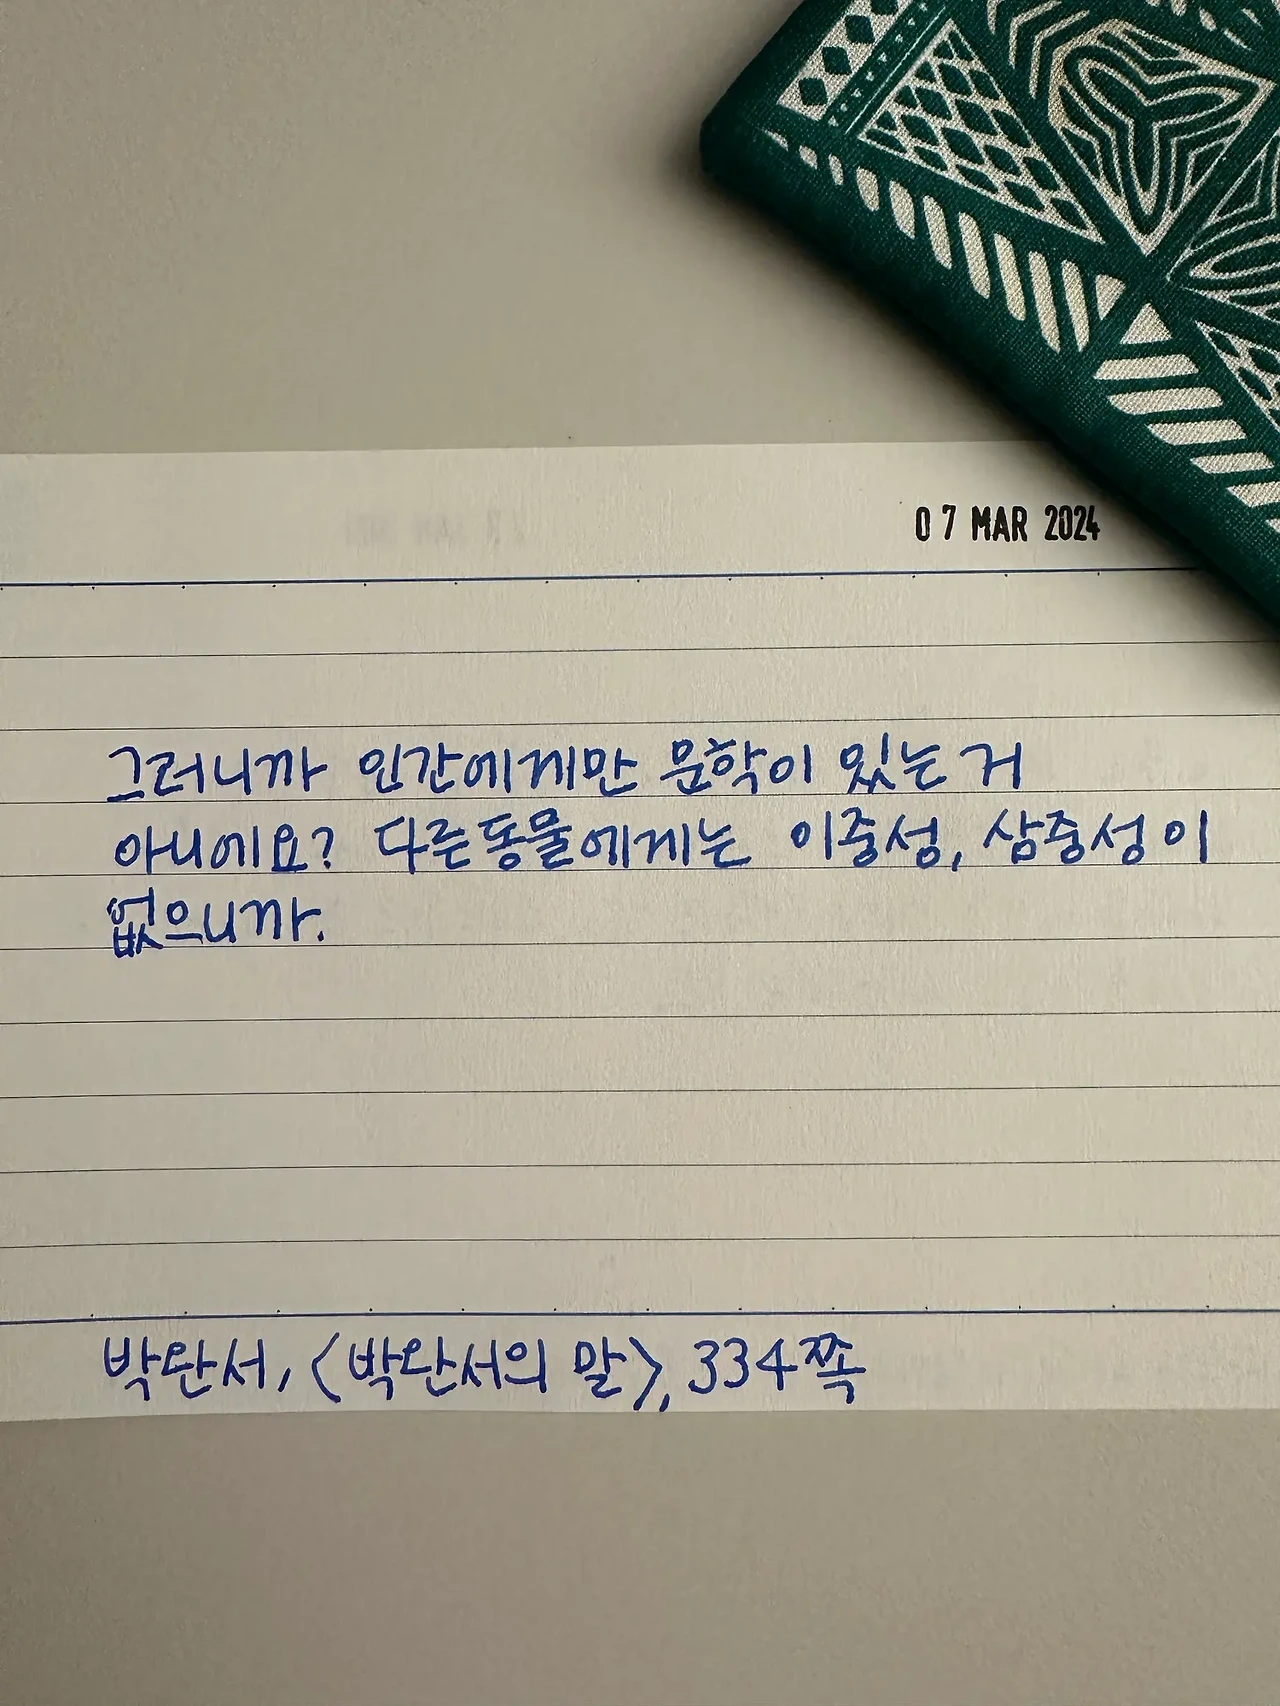 07 MAR 2024
그러니까 인간에게만 문학이 있는 거
아니에요? 다른 동물에게는 이중성, 삼중성이
없으니까.
박완서, <박완서의 말>, 334쪽